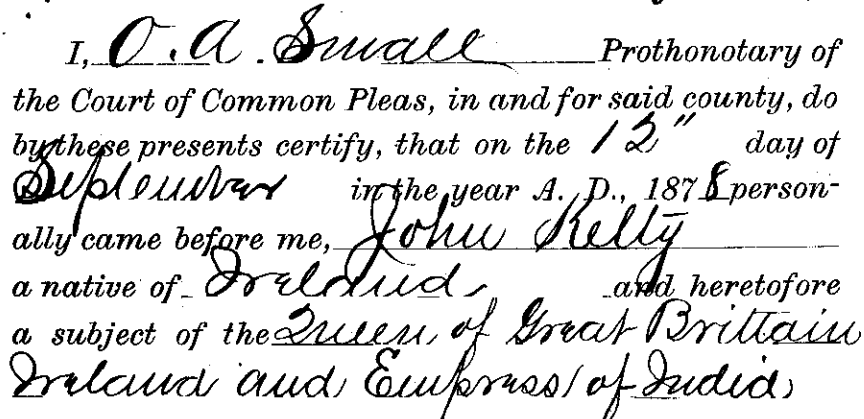 I, O. A. Small Prothonotary of
the Court of Common Pleas, in and for said county, do
by these presents certify, that on the 12" day of
September in the year A. D., 1878 person-
ally came before me, John Kelly
a native of Ireland and heretofore
a subject of the Queen of Great Brittain
Ireland and Empress of India